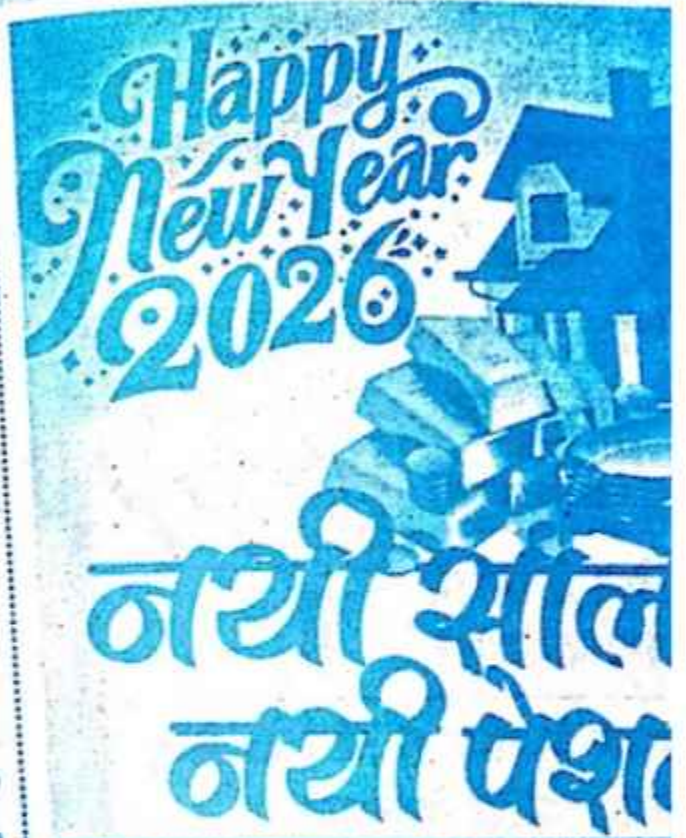 Happy
New Year
2026
नयी साल
नयी